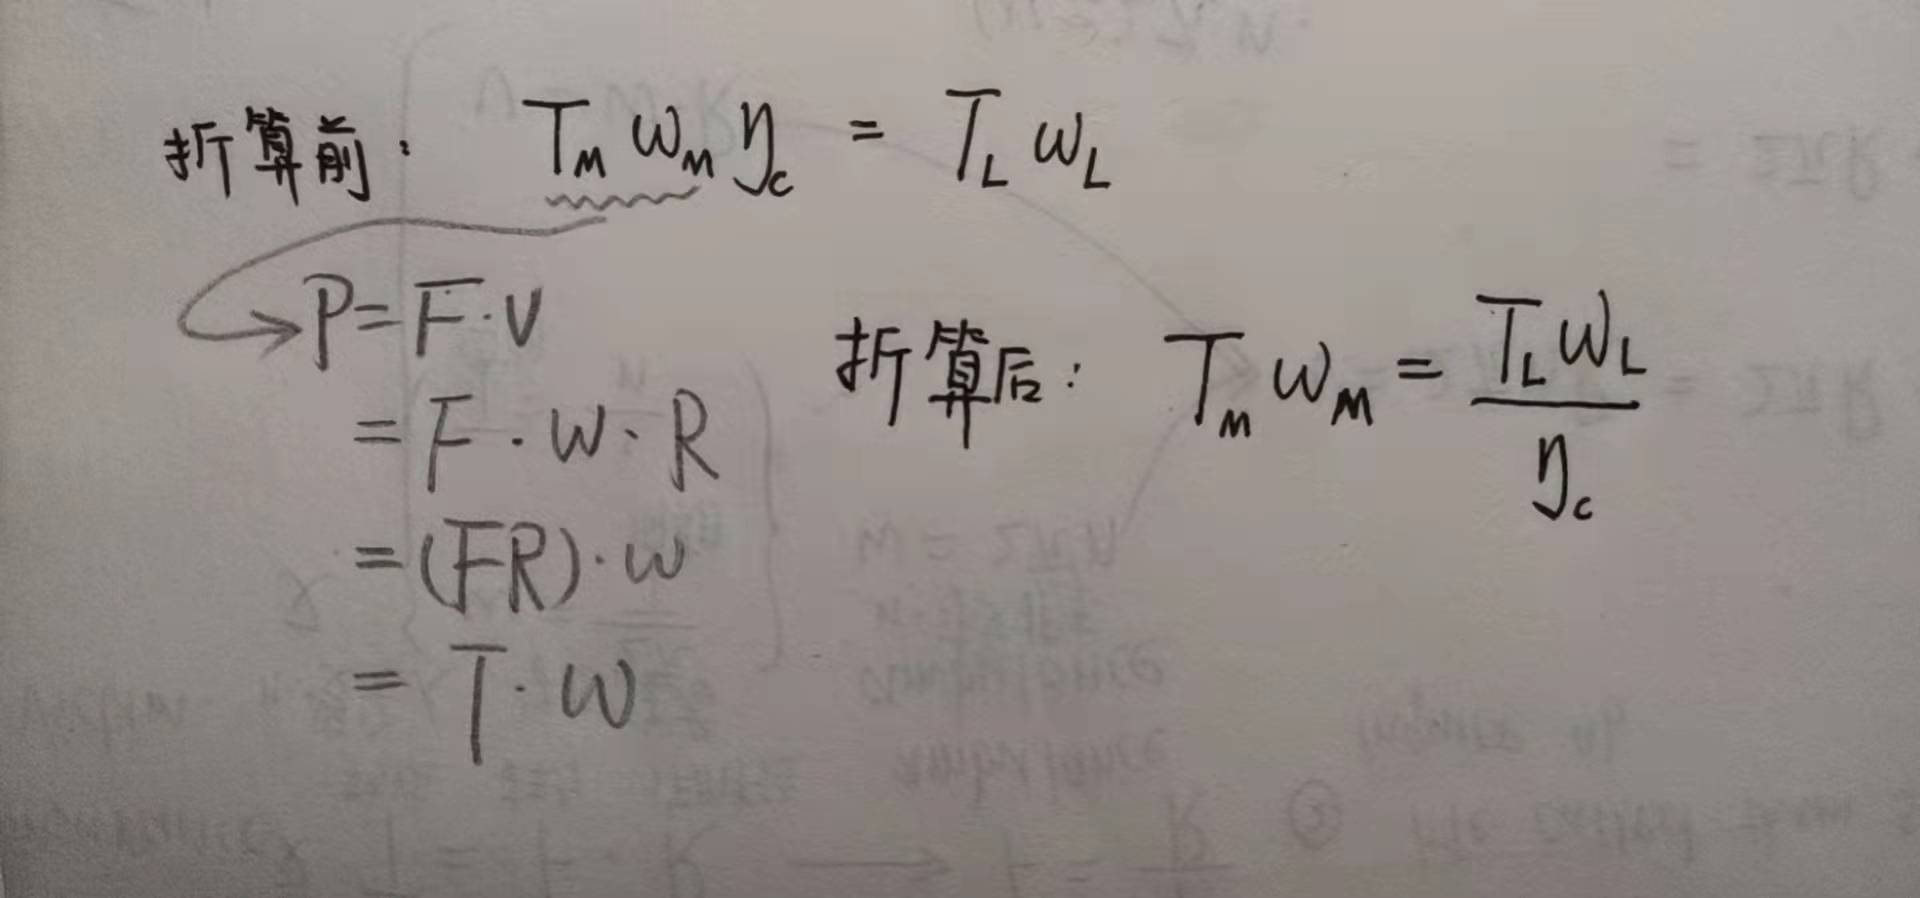 折算前： T_M ω_M η_c = T_L ω_L
P = F·v
= F·ω·R
= (FR)·ω
= T·ω
折算后： T_M ω_M = T_L ω_L / η_c